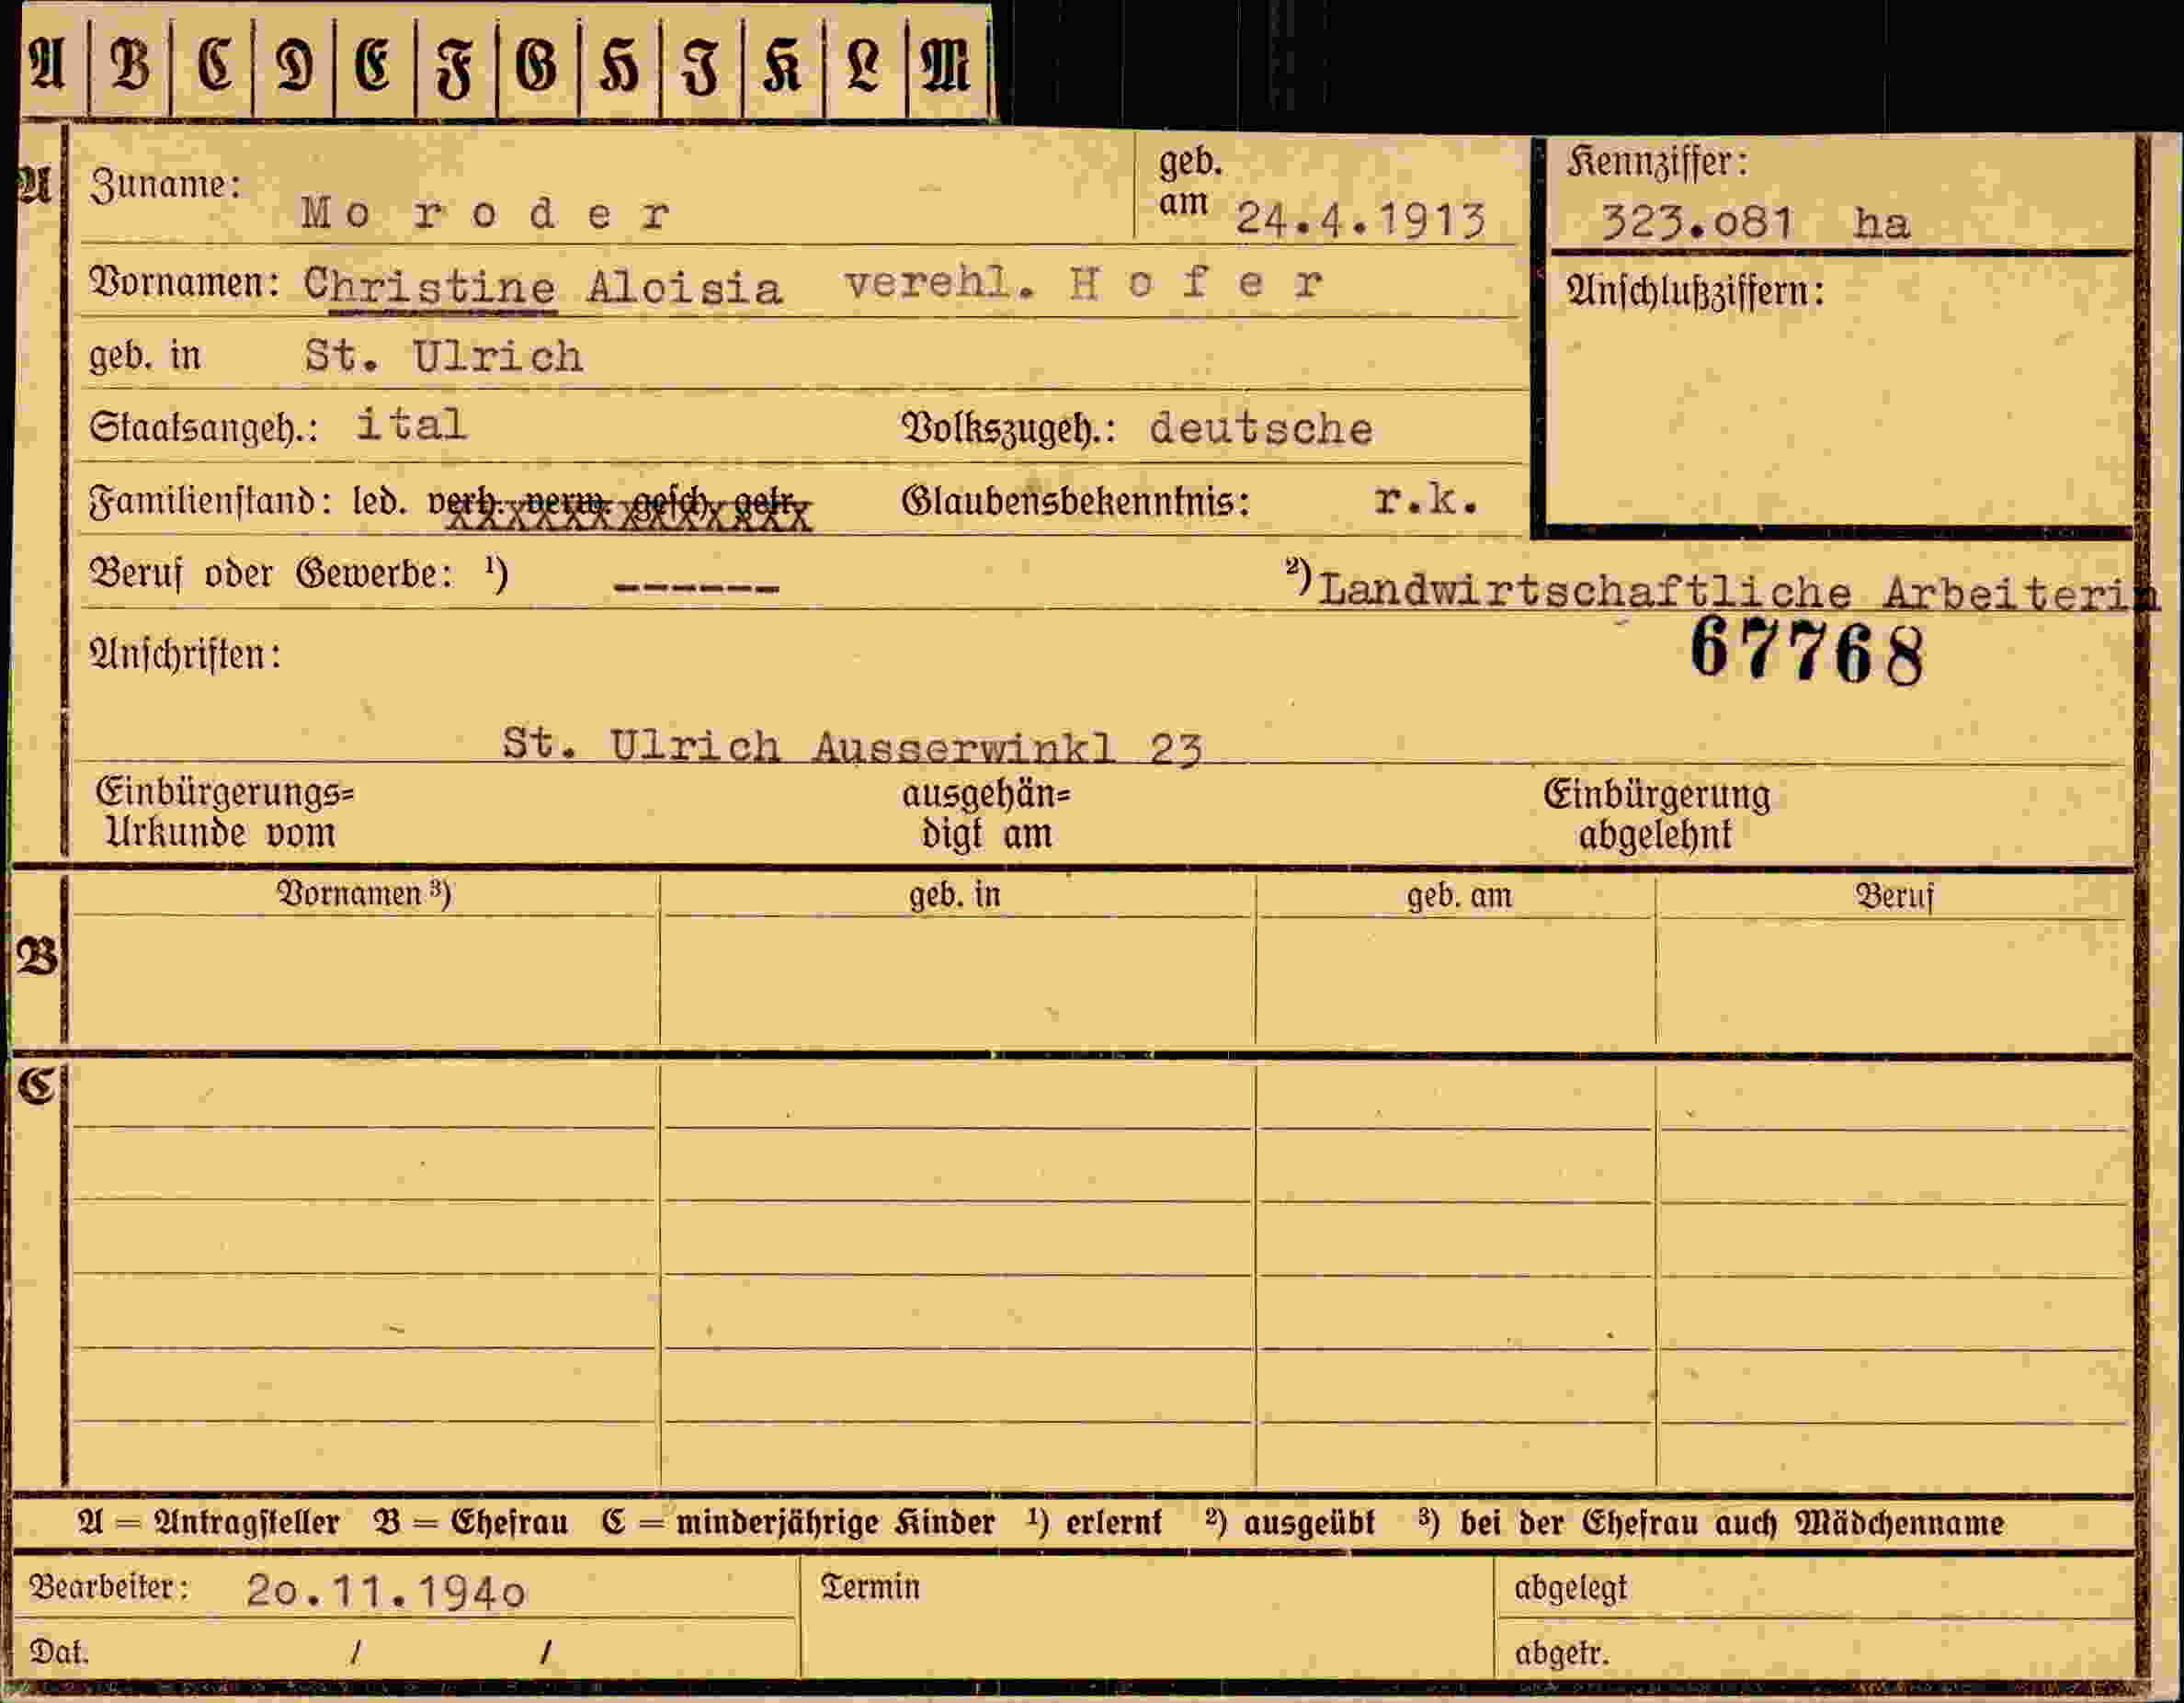 A B C D E F G H I K L M
A
Zuname: Moroder
geb. am 24.4.1913
Kennziffer: 323.o81 ha
Vornamen: Christine Aloisia verehl. Hofer
Anschlußziffern:
geb. in St. Ulrich
Staatsangeh.: ital Volkszugeh.: deutsche
Familienstand: led. verh. verw. gesch. getr. Glaubensbekenntnis: r.k.
Beruf oder Gewerbe: ¹) ------ ²) Landwirtschaftliche Arbeiterin
Anschriften: 67768
St. Ulrich Ausserwinkl 23
Einbürgerungs= ausgehän= Einbürgerung
Urkunde vom digt am abgelehnt
Vornamen ³) geb. in geb. am Beruf
B
C
A = Antragsteller B = Ehefrau C = minderjährige Kinder ¹) erlernt ²) ausgeübt ³) bei der Ehefrau auch Mädchenname
Bearbeiter: 2o.11.194o Termin abgelegt
Dat. / / abgetr.